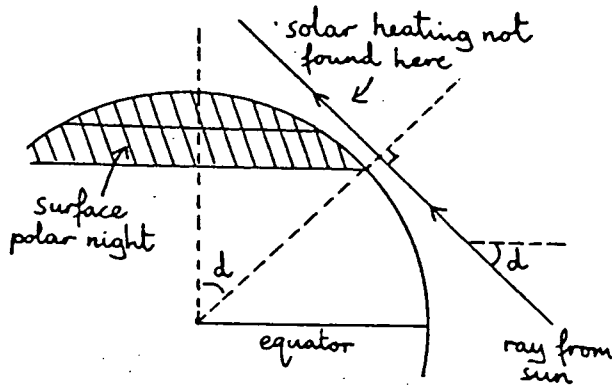 solar heating not
found here
surface
polar night
d
d
equator
ray from
sun